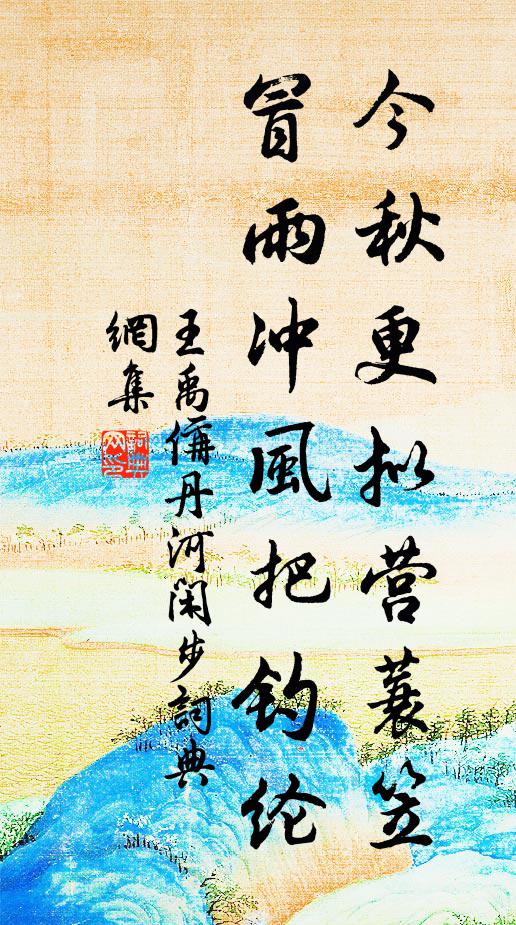 今秋更拟营蓑笠
冒雨冲風把钓纶
王禹偁丹河闲步詞典
網集